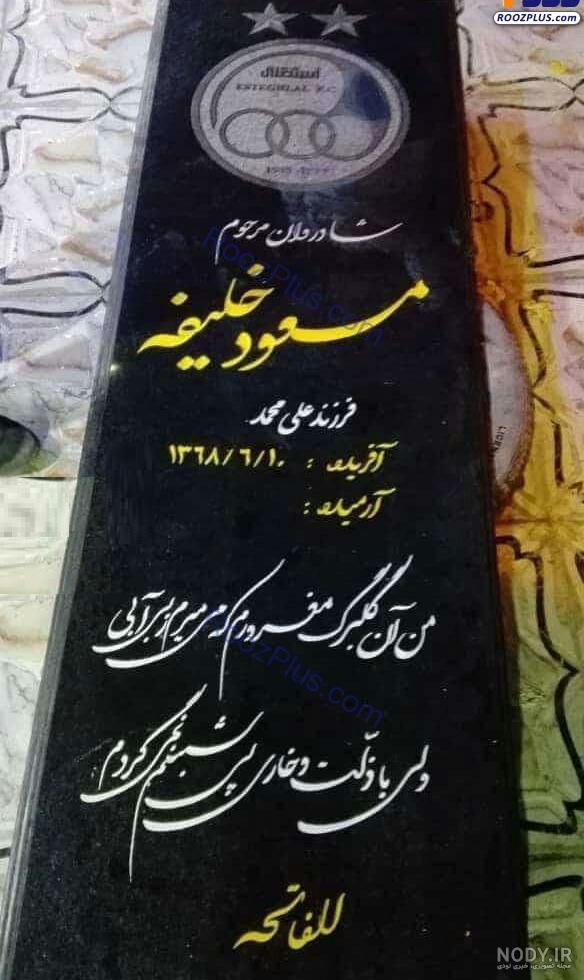 ROOZPLUS.COM
استقلال
ESTEGHLAL F.C
شادروان مرحوم
مسعود خلیفه
فرزند علی محمد
آفریده : ۱۳۶۸/۶/۱۰
آرمیده :
من آن گلبرگ مغرورم که می میرم ز بی آبی
ولی با ذلّت و خاری پی شبنم نمی گردم
للفاتحه
RoozPlus.com
RoozPlus.com
NODY.IR
مجله تصویری، خبری نودی